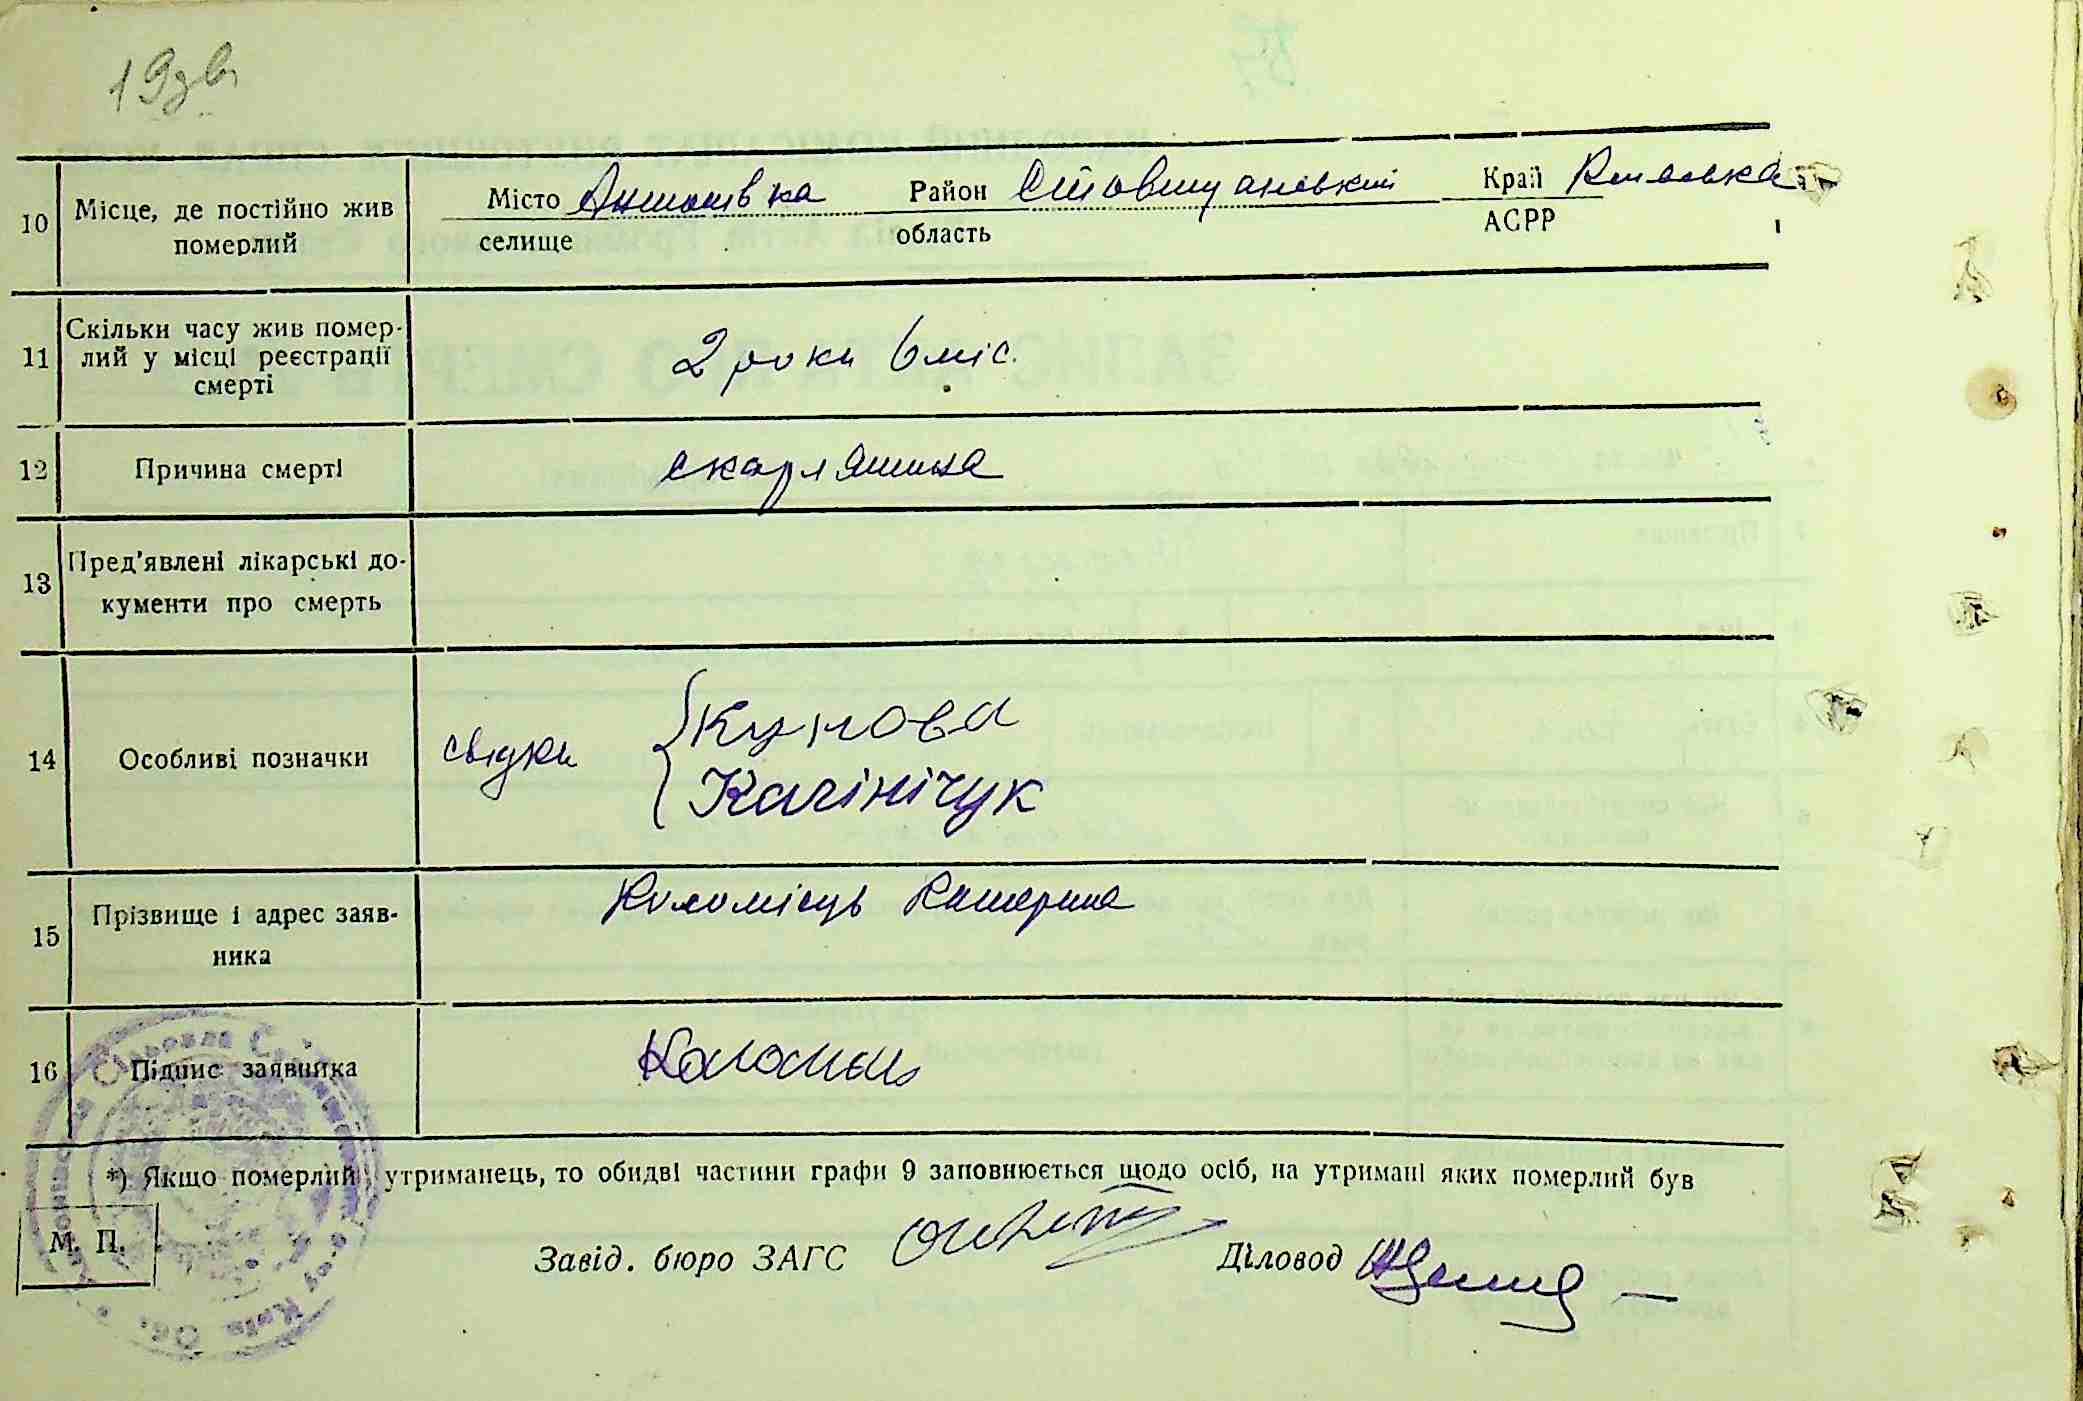 19зв
10 Місце, де постійно жив померлий
Місто Антонівка Район Ставищанський Край Київська
селище область АСРР
11 Скільки часу жив померлий у місці реєстрації смерті
2 роки 6 міс.
12 Причина смерті
скарлятина
13 Пред'явлені лікарські документи про смерть
14 Особливі позначки
свідки
Качінічук
15 Прізвище і адрес заявника
Коломієць Катерина
16 Підпис заявника
*) Якщо померлий утриманець, то обидві частини графи 9 заповнюється щодо осіб, на утримані яких померлий був
М. П.
Завід. бюро ЗАГС Діловод